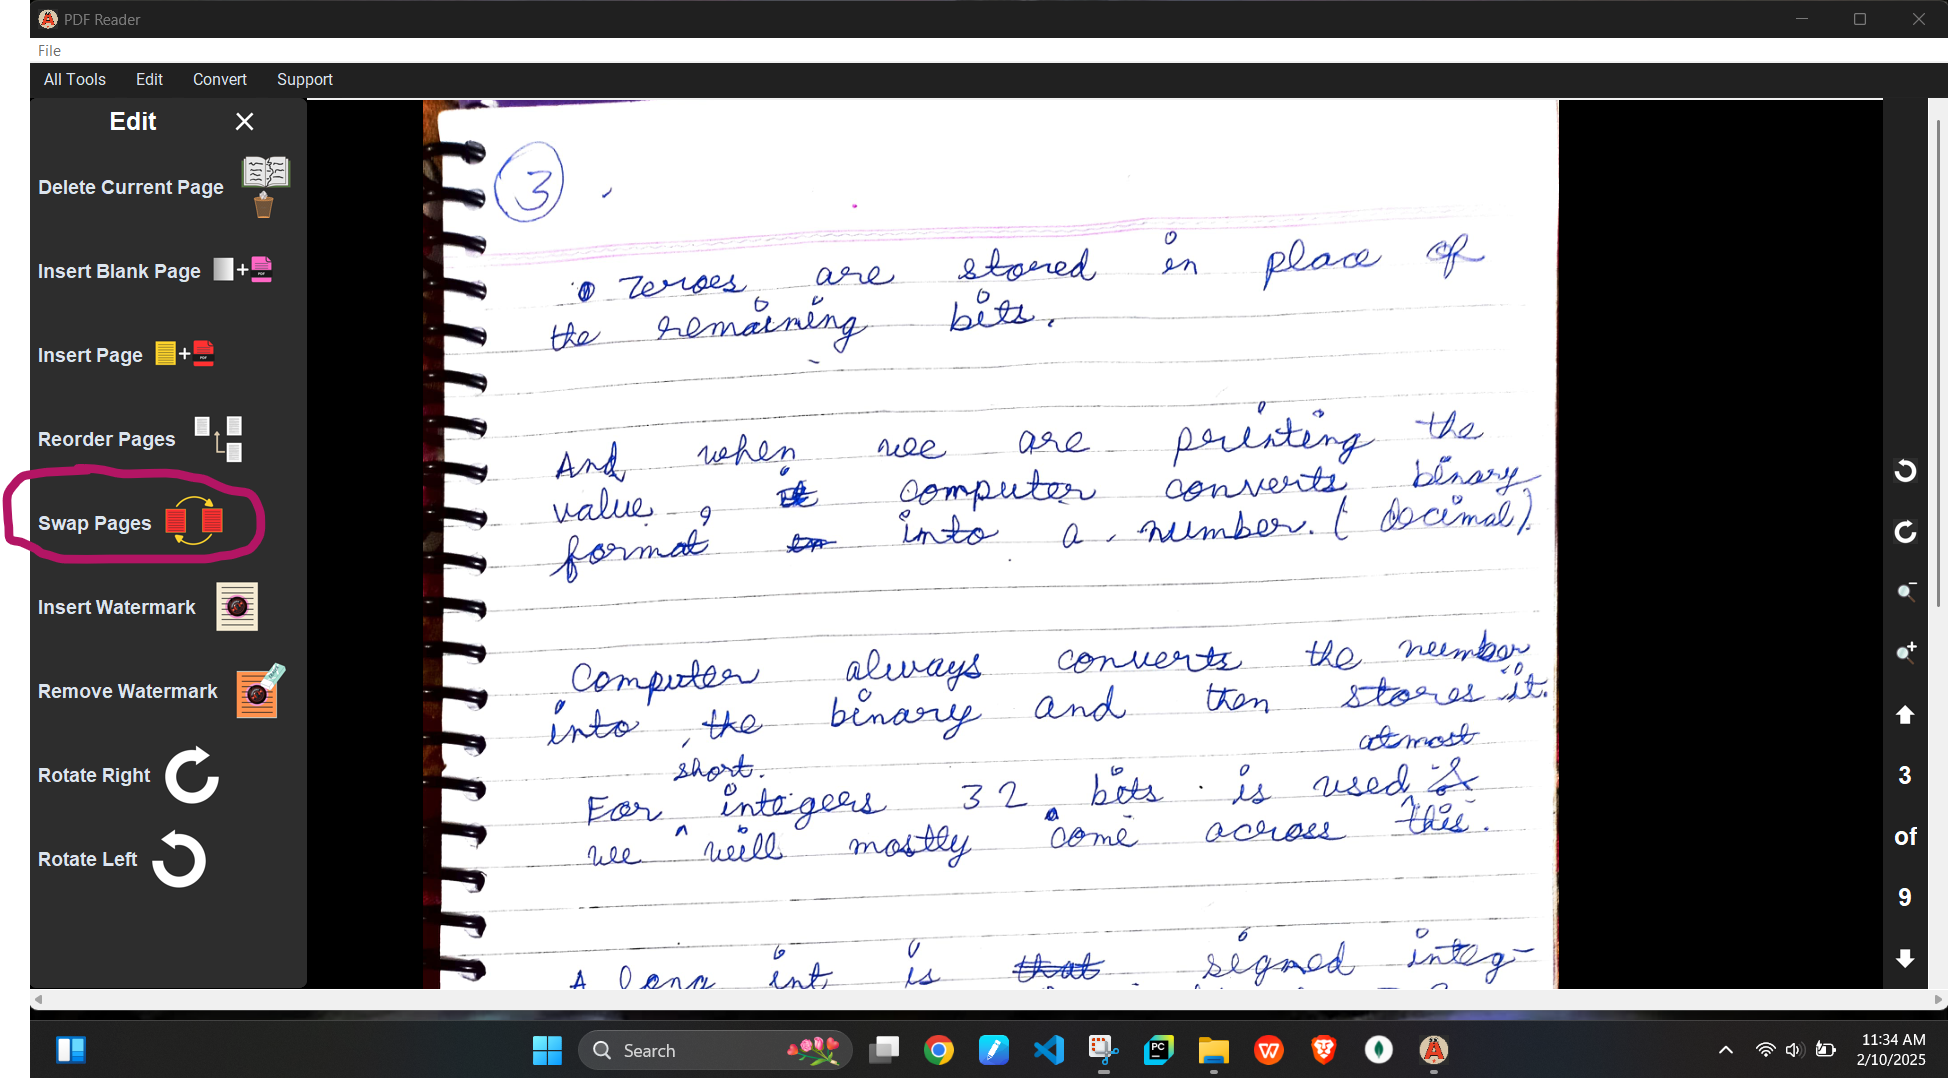 PDF Reader
File
All Tools Edit Convert Support
Edit
Delete Current Page
Insert Blank Page
Insert Page
Reorder Pages
Swap Pages
Insert Watermark
Remove Watermark
Rotate Right
Rotate Left
3
zeroes are stored in place of
the remaining bits.
And when we are printing the
value, it computer converts binary
format in into a number. (decimal).
Computer always converts the number
into the binary and then stores it.
short. atmost
For integers 32 bits is used &
we will mostly come across this.
A long int is that signed integ-
3
of
9
Search
PC
11:34 AM
2/10/2025